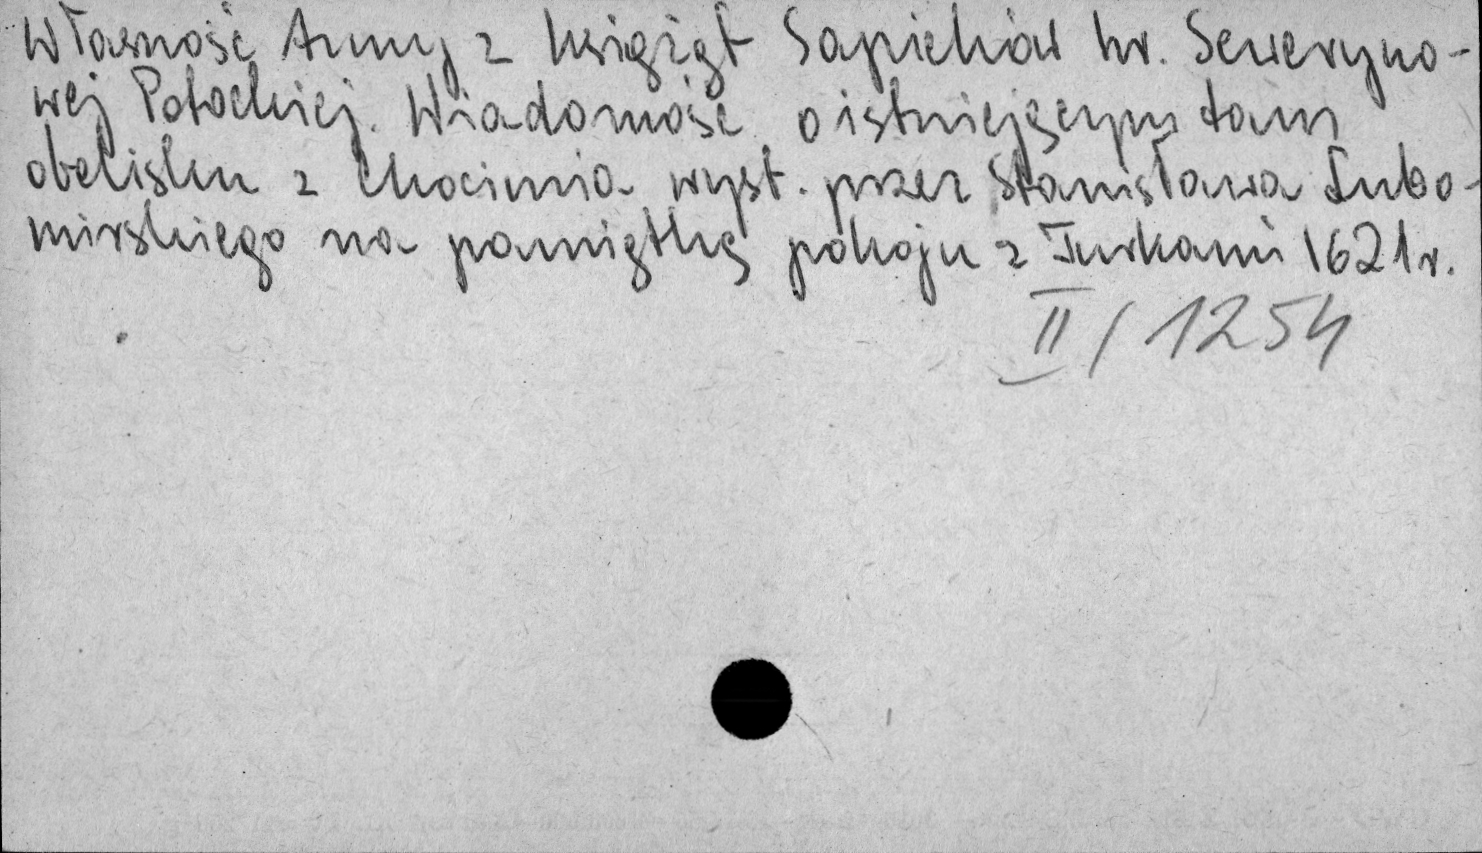 Własność Anny z książąt Sapiehów hr. Seweryno-
wej Potockiej. Wiadomość o istniejącym tam
obelisku z Chocimia wyst. przez Stanisława Lubo-
mirskiego na pamiątkę pokoju z Turkami 1621 r.
II/1254